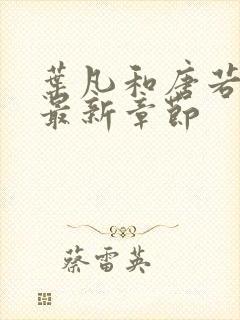 葉凡和唐若
最新章節
蔡雷英